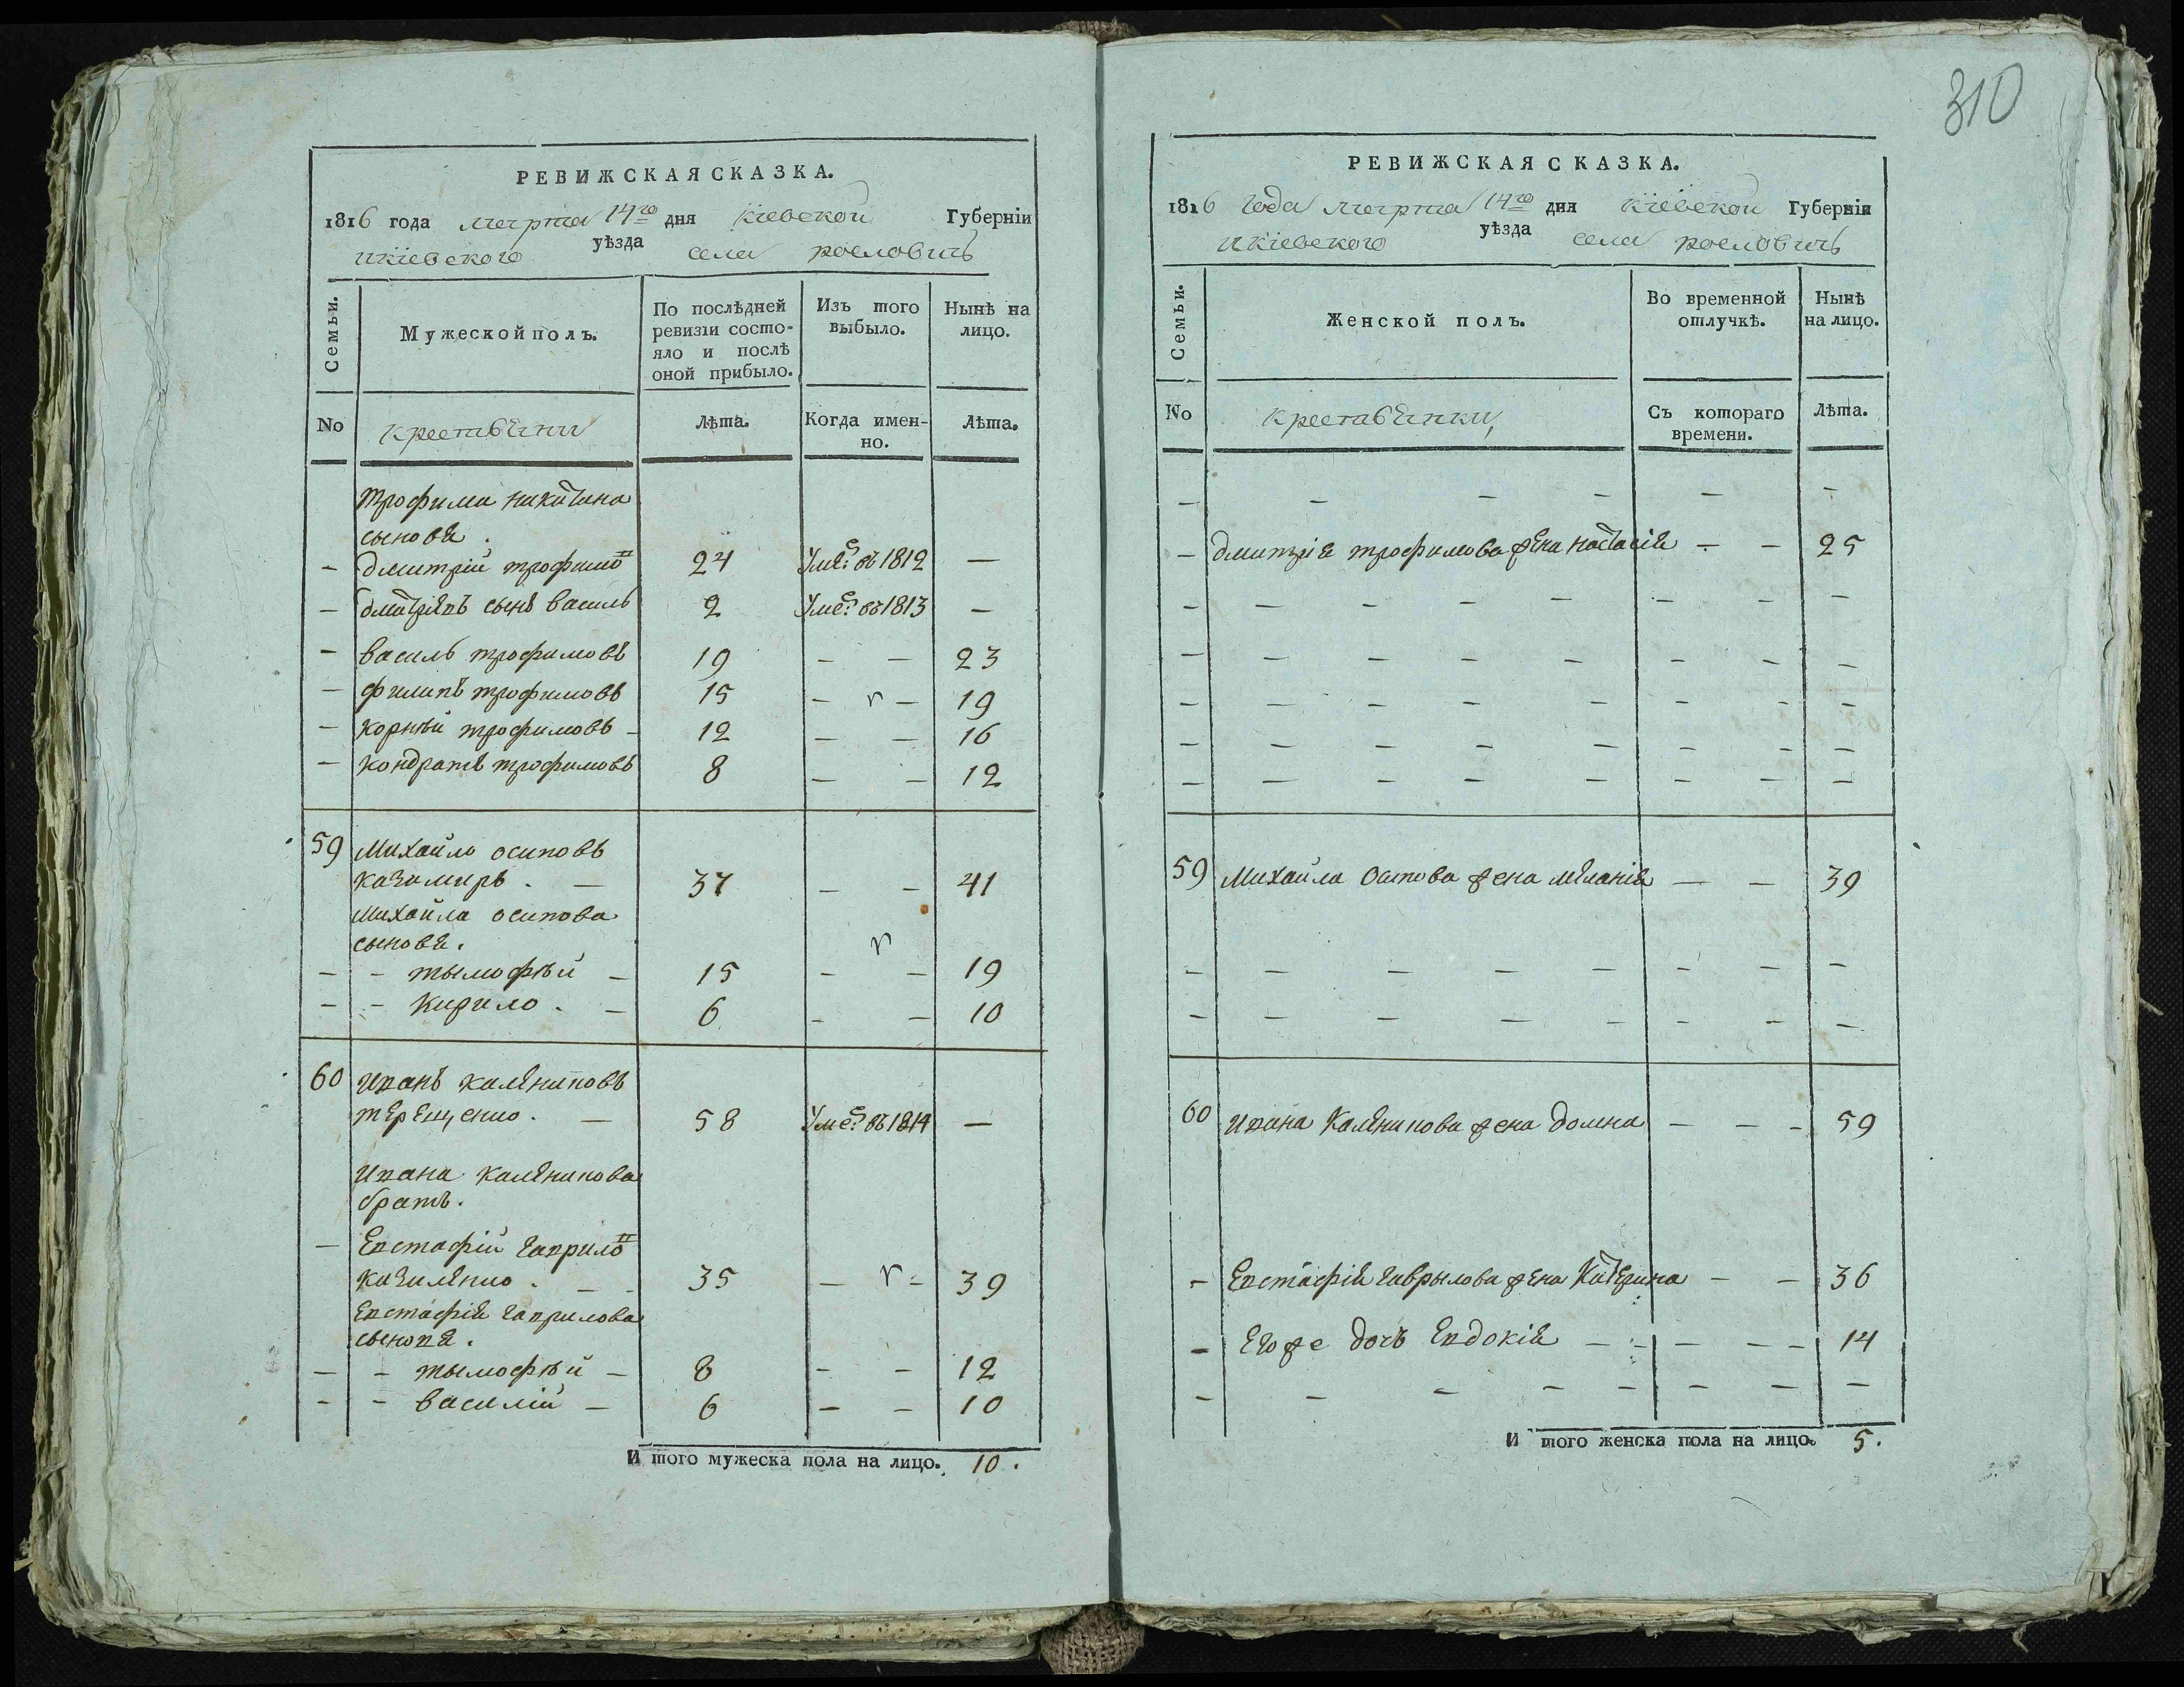 310
РЕВИЖСКАЯ СКАЗКА.
1816 года марта 14го дня кіевской Губерніи
икіевского уѣзда села рословичь
Семьи.
Мужеской полъ.
По послѣдней ревизіи состояло и послѣ оной прибыло.
Изъ того выбыло.
Нынѣ на лицо.
No
Лѣта.
Когда именно.
Лѣта.
трофима никитина
сыновя.
– дмитрій трофимо 24 Умер: въ 1812 —
– сынъ василь 2 Умер: въ 1813 —
– василь трофимовъ 19 – – 23
– филипъ трофимовъ 15 – – 19
– корнѣй трофимовъ – 12 – – 16
– кондратъ трофимовъ 8 – – 12
59 Михайло осиповъ
казимиръ. – 37 – – 41
Михайла осипова
сыновя.
– – тымофѣй – 15 – – 19
– – кирило. – 6 – – 10
60 иванъ калениковъ
терещенко. – 58 Умер: въ 1814 —
ивана каленикова
братъ.
– Евстафій гаврило
35 – – 39
Евстафія гаврилова
сыновя.
– – тымофѣй – 8 – – 12
– – василій – 6 – – 10
И того мужеска пола на лицо. 10.
РЕВИЖСКАЯ СКАЗКА.
1816 года марта 14го дня кіевской Губерніи
икіевского уѣзда села рословичь
Семьи.
Женской полъ.
Во временной отлучкѣ.
Нынѣ на лицо.
No
Съ котораго времени.
Лѣта.
– – – – – –
– дмитрія трофимова жена настасія – – 25
– – – – – – – –
– – – – – – – –
– – – – – – – –
– – – – – – – –
– – – – – – – –
59 Михайла Осипова жена меланія – – 39
– – – – – – – –
– – – – – – – –
60 ивана каленикова жена домна – – – 59
– Евстафія гаврылова жена Катерина – – 36
– Его же дочь Евдокія – – – – – 14
– – – – – – – –
И того женска пола на лицо. 5.